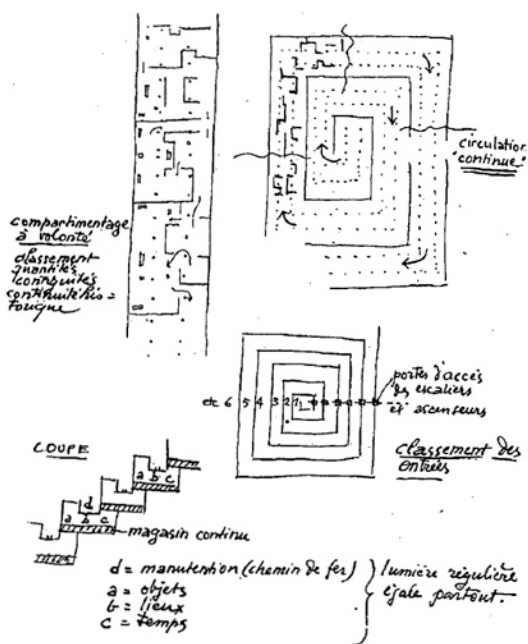 circulation
continue!
compartimentage
à volonté
classement
quantités
continuités
continuité his=
torique
portes d'accès
des escaliers
et ascenseurs
etc 6 5 4 3 2 1
classement des
entrées
COUPE
a b c
d
a b c
magasin continu
d = manutention (chemin de fer)
a = objets
b = lieux
c = temps
lumière régulière
égale partout.